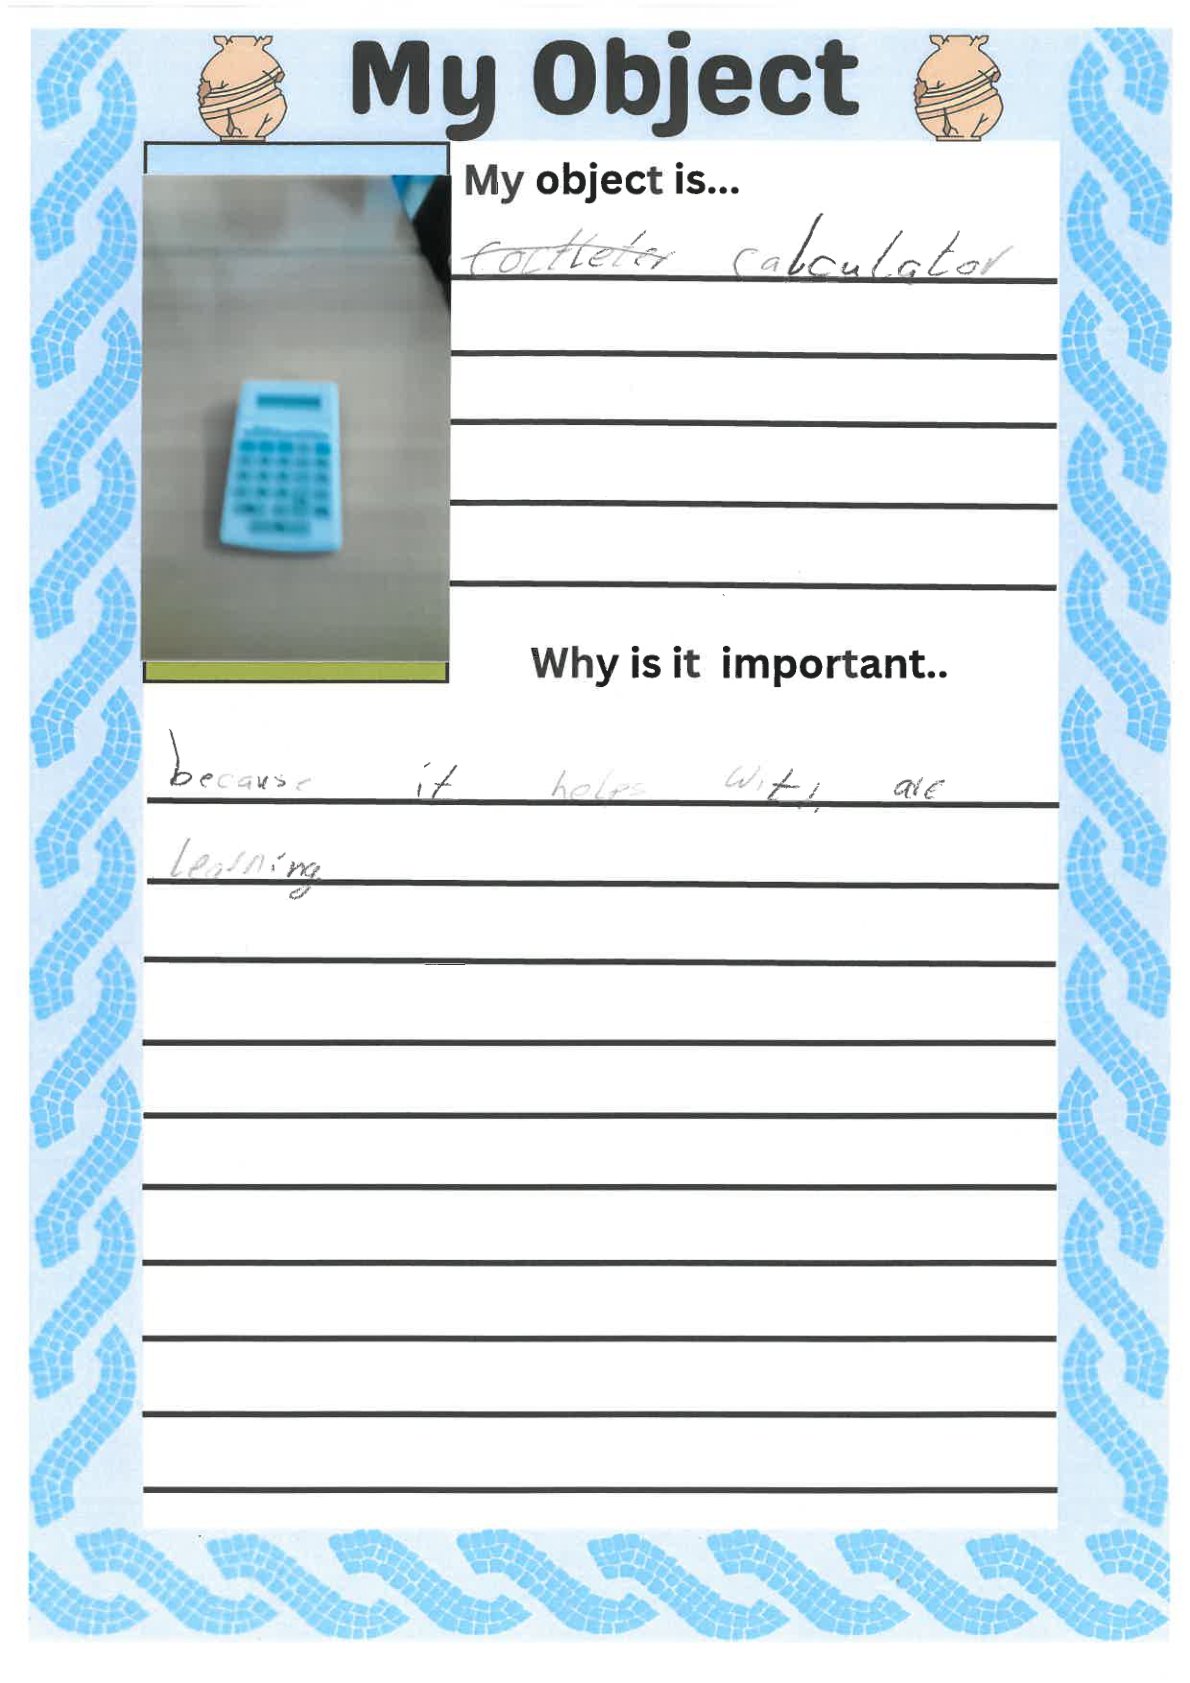 My Object
My object is...
calculator
Why is it important..
because it helps with are
learning